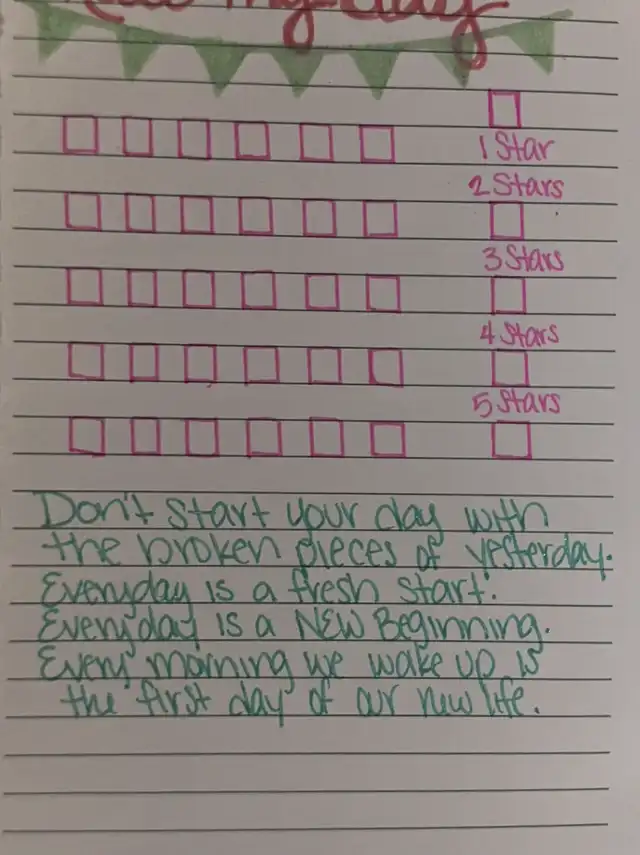 my day
1 Star
2 Stars
3 Stars
4 Stars
5 Stars
Don't start your day with
the broken pieces of yesterday.
Everyday is a fresh start.
Everyday is a NEW Beginning.
Every morning we wake up is
the first day of our new life.